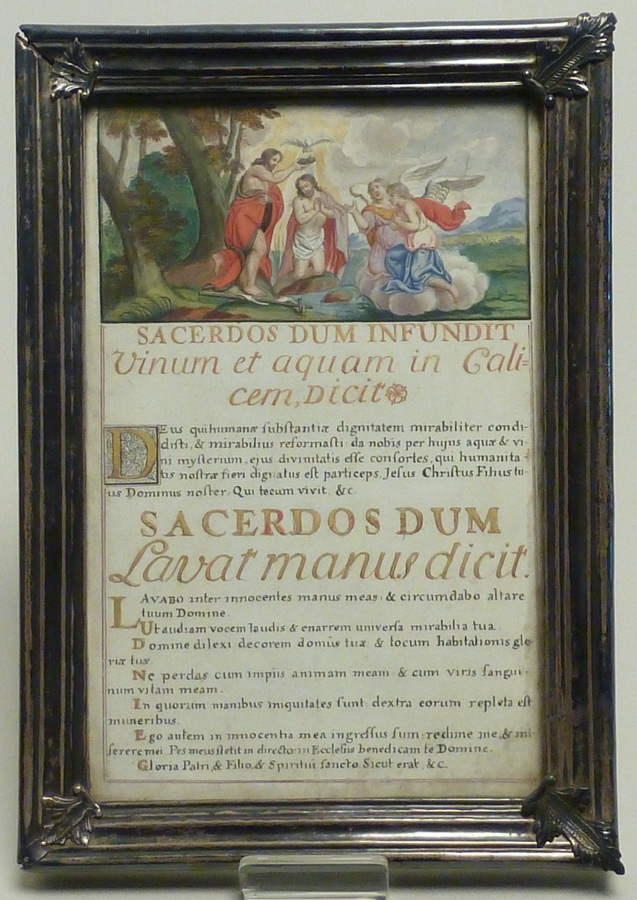 SACERDOS DUM INFUNDIT
Vinum et aquam in Cali=
cem, Dicit
Deus qui humanæ substantiæ dignitatem mirabiliter condi-
disti, & mirabilius reformasti: da nobis per hujus aquæ & vi-
ni mysterium, ejus divinitatis esse consortes, qui humanita-
tis nostræ fieri dignatus est particeps, Jesus Christus Filius tu-
us Dominus noster: Qui tecum vivit, &c.
SACERDOS DUM
Lavat manus dicit.
LAVABO inter innocentes manus meas: & circumdabo altare
tuum Domine.
Ut audiam vocem laudis & enarrem universa mirabilia tua.
Domine dilexi decorem domûs tuæ & locum habitationis glo-
riæ tuæ.
Ne perdas cum impiis animam meam & cum viris sangui-
num vitam meam.
In quorum manibus iniquitates sunt, dextra eorum repleta est
muneribus.
Ego autem in innocentia mea ingressus sum, redime me, & mi-
serere mei. Pes meus stetit in directo: in Ecclesiis benedicam te Domine.
Gloria Patri, & Filio, & Spiritui sancto. Sicut erat, &c.